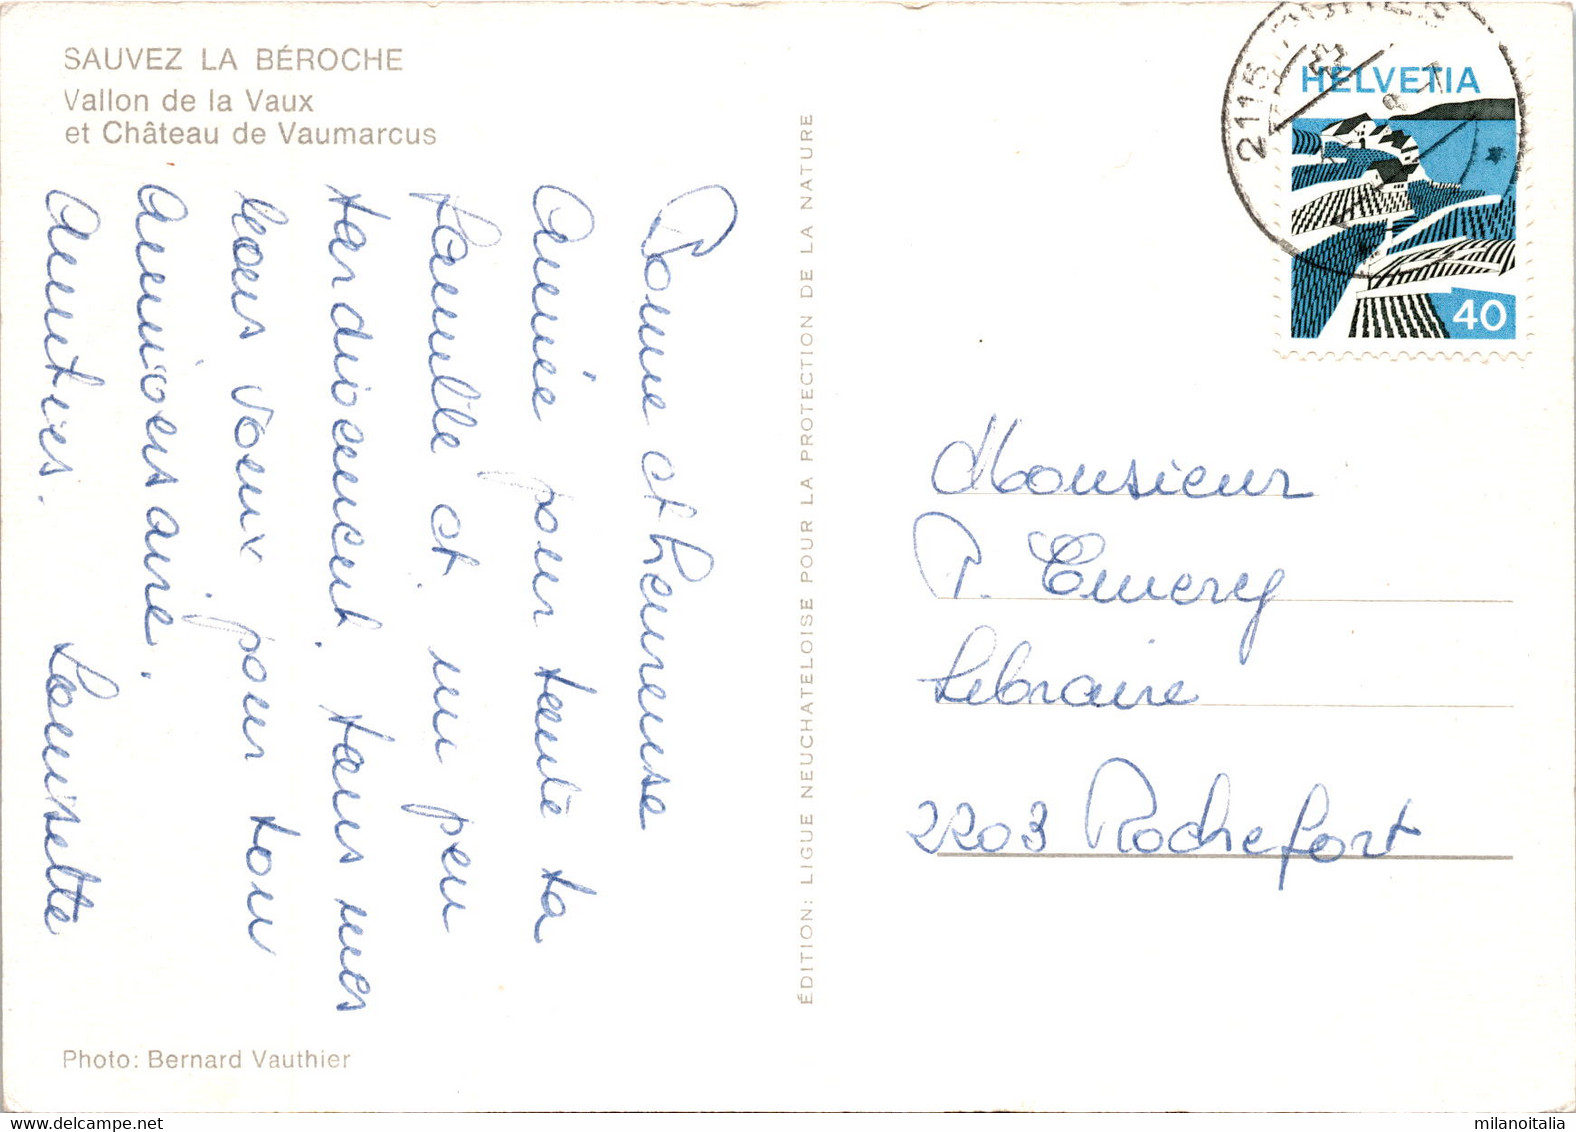 SAUVEZ LA BÉROCHE
Vallon de la Vaux
et Château de Vaumarcus
Bonne et heureuse
Année pour toute ta
famille et un peu
tardivement, tous mes
bons voeux pour ton
Anniversaire.
Amitiés. Louisette
Photo: Bernard Vauthier
ÉDITION: LIGUE NEUCHATELOISE POUR LA PROTECTION DE LA NATURE
2115
HELVETIA
40
Monsieur
P. Emery
Libraire
2203 Rochefort
milanoitalia